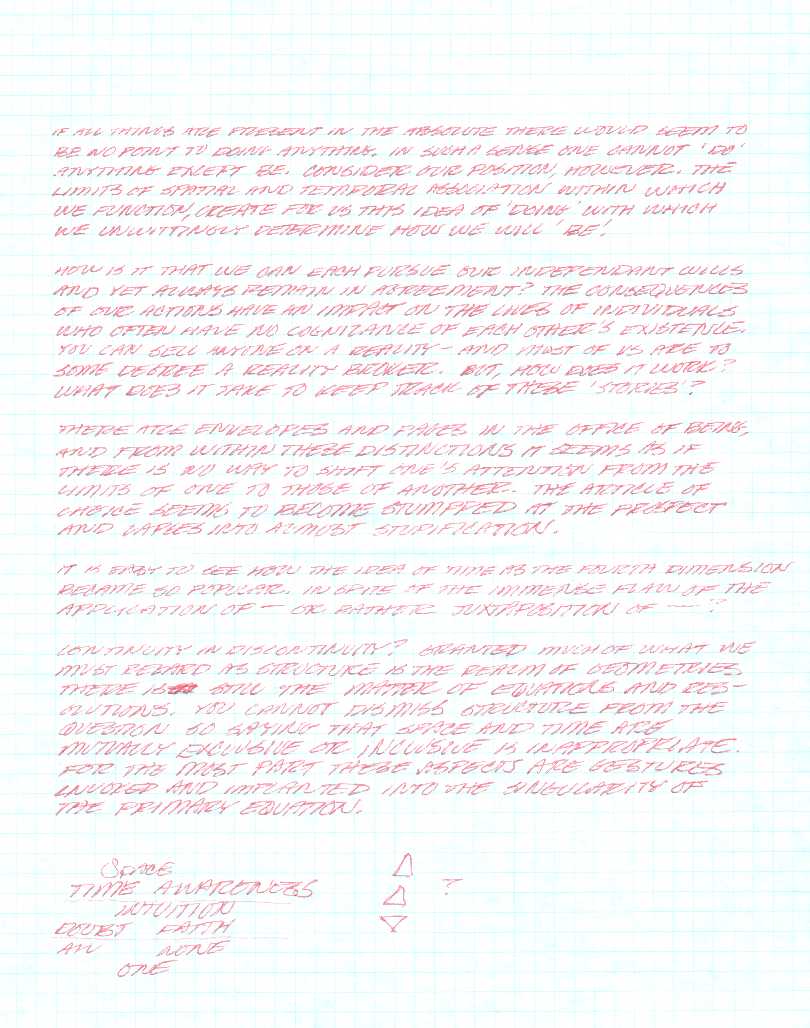 IF ALL THINGS ARE PRESENT IN THE ABSOLUTE THERE WOULD SEEM TO
BE NO POINT TO DOING ANYTHING. IN SUCH A SENSE ONE CANNOT 'DO'
ANYTHING EXCEPT BE. CONSIDER OUR POSITION, HOWEVER. THE
LIMITS OF SPATIAL AND TEMPORAL ASSOCIATION WITHIN WHICH
WE FUNCTION, CREATE FOR US THIS IDEA OF 'DOING' WITH WHICH
WE UNWITTINGLY DETERMINE HOW WE WILL 'BE'.

HOW IS IT THAT WE CAN EACH PURSUE OUR INDEPENDANT WILLS
AND YET ALWAYS REMAIN IN AGREEMENT? THE CONSEQUENCES
OF OUR ACTIONS HAVE AN IMPACT ON THE LIVES OF INDIVIDUALS
WHO OFTEN HAVE NO COGNIZANCE OF EACH OTHER'S EXISTENCE.
YOU CAN SELL ANYONE ON A REALITY - AND MOST OF US ARE TO
SOME DEGREE A REALITY BROKER. BUT, HOW DOES IT WORK?
WHAT DOES IT TAKE TO KEEP TRACK OF THESE 'STORIES'?

THERE ARE ENVELOPES AND PAGES IN THE OFFICE OF BEING,
AND FROM WITHIN THESE DISTINCTIONS IT SEEMS AS IF
THERE IS NO WAY TO SHIFT ONE'S ATTENTION FROM THE
LIMITS OF ONE TO THOSE OF ANOTHER. THE ARTICLE OF
CHOICE SEEMS TO BECOME STUMPPED AT THE PROSPECT
AND LAPSES INTO ALMOST STUPIFICATION.

IT IS EASY TO SEE HOW THE IDEA OF TIME AS THE FOURTH DIMENSION
BECAME SO POPULER. IN SPITE OF THE IMMENSE FLAW OF THE
APPLICATION OF — OR RATHER JUXTAPOSITION OF — ?

CONTINUITY IN DISCONTINUITY? GRANTED MUCH OF WHAT WE
MUST REGARD AS STRUCTURE IS THE REALM OF GEOMETRIES
THERE IS STILL THE MATTER OF EQUATIONS AND RES-
OLUTIONS. YOU CANNOT DISMISS STRUCTURE FROM THE
QUESTION SO SAYING THAT SPACE AND TIME ARE
MUTUALLY EXCLUSIVE OR INCLUSIVE IS INAPPROPRIATE.
FOR THE MOST PART THESE ASPECTS ARE GESTURES
INVOKED AND IMPLANTED INTO THE SINGULARITY OF
THE PRIMARY EQUATION.

SPACE
TIME AWARENESS ?
INTUITION
DOUBT FAITH
ALL NONE
ONE